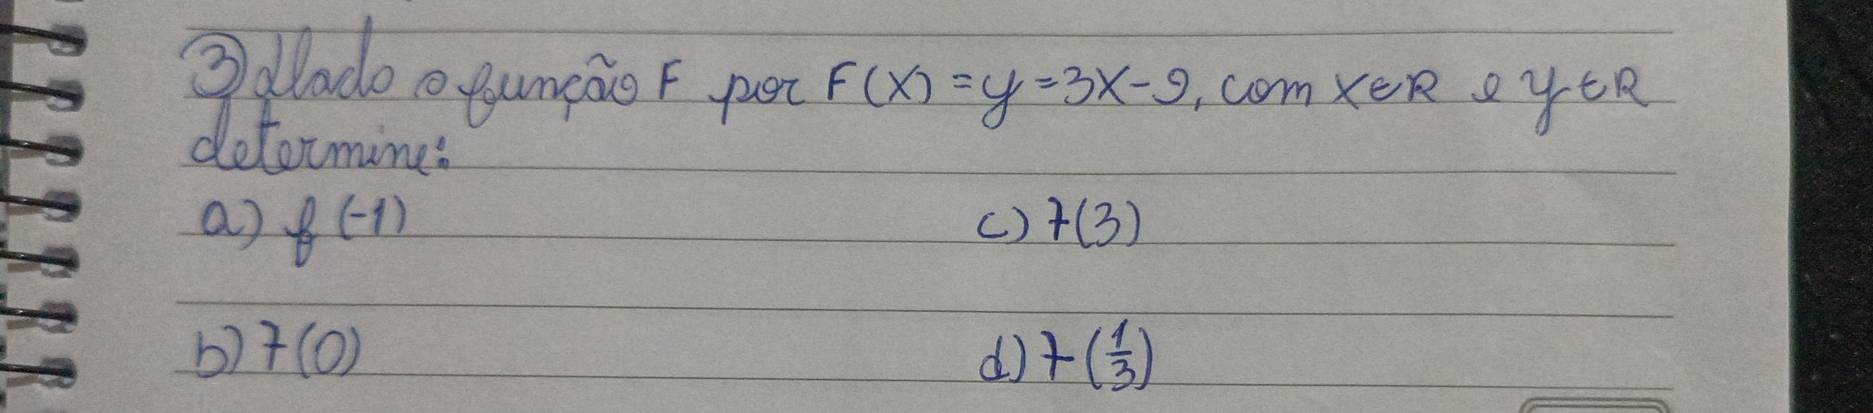 3) Dado o função F por F(X) = y = 3X - 9, com X ∈ R e y ∈ R
determine:
a) f (-1)
c) f(3)
b) f(0)
d) f(1/3)